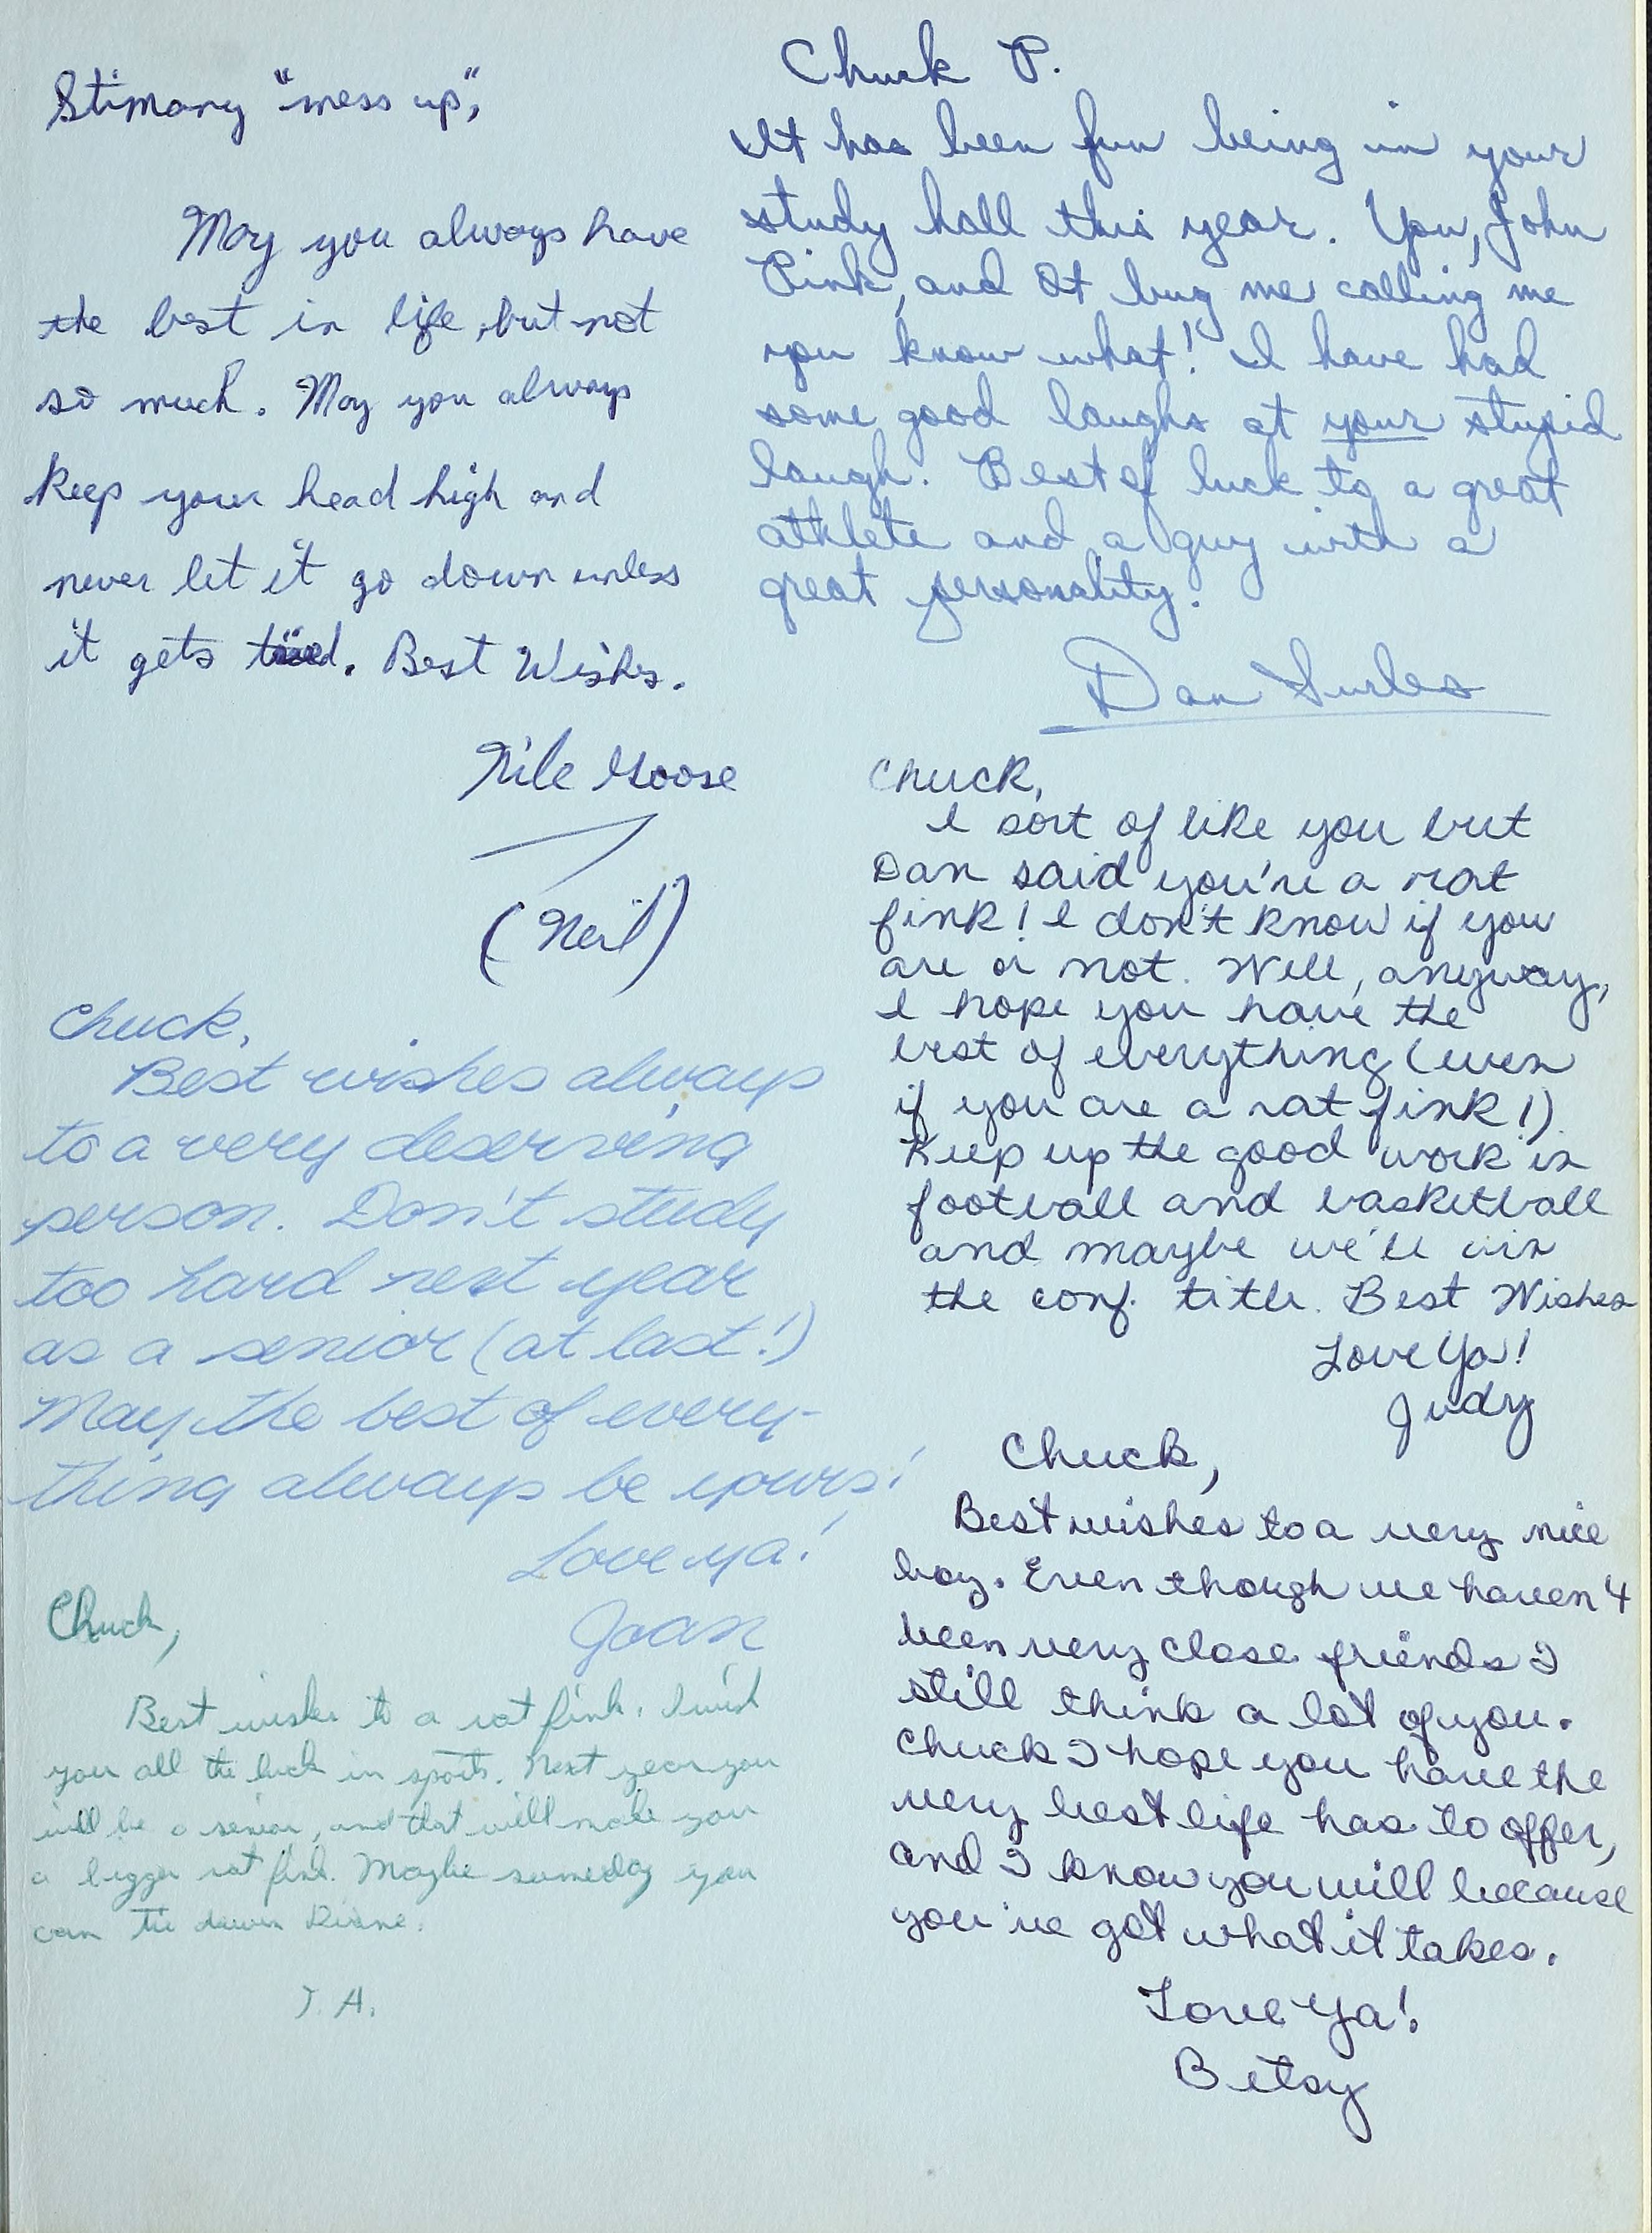 Stimary "mess up",
May you always have
the best in life, but not
so much. May you always
keep your head high and
never let it go down unless
it gets tired. Best Wishes.
Nile Goose
(Neil)
Chuck,
Best wishes always
to a very deserving
person. Don't study
too hard next year
as a senior (at last!)
May the best of every-
thing always be yours!
Love ya!
Joan
Chuck,
Best wishes to a rat fink. I wish
you all the luck in sports. Next year you
will be a senior, and that will make you
a bigger rat fink. Maybe someday you
can tie down Diane.
T. A.
Chuck P.
It has been fun being in your
study hall this year. You, John
Pink, and Ot bug me calling me
you know what! I have had
some good laughs at your stupid
laugh. Best of luck to a great
athlete and a guy with a
great personality.
Dan Surles
Chuck,
I sort of like you but
Dan said you're a rat
fink! I don't know if you
are or not. Well, anyway,
I hope you have the
best of everything (even
if you are a rat fink!).
Keep up the good work in
football and basketball
and maybe we'll win
the conf. title. Best Wishes
Love Ya!
Judy
Chuck,
Best wishes to a very nice
boy. Even though we haven't
been very close friends I
still think a lot of you.
Chuck I hope you have the
very best life has to offer,
and I know you will because
you've got what it takes.
Love Ya!
Betsy